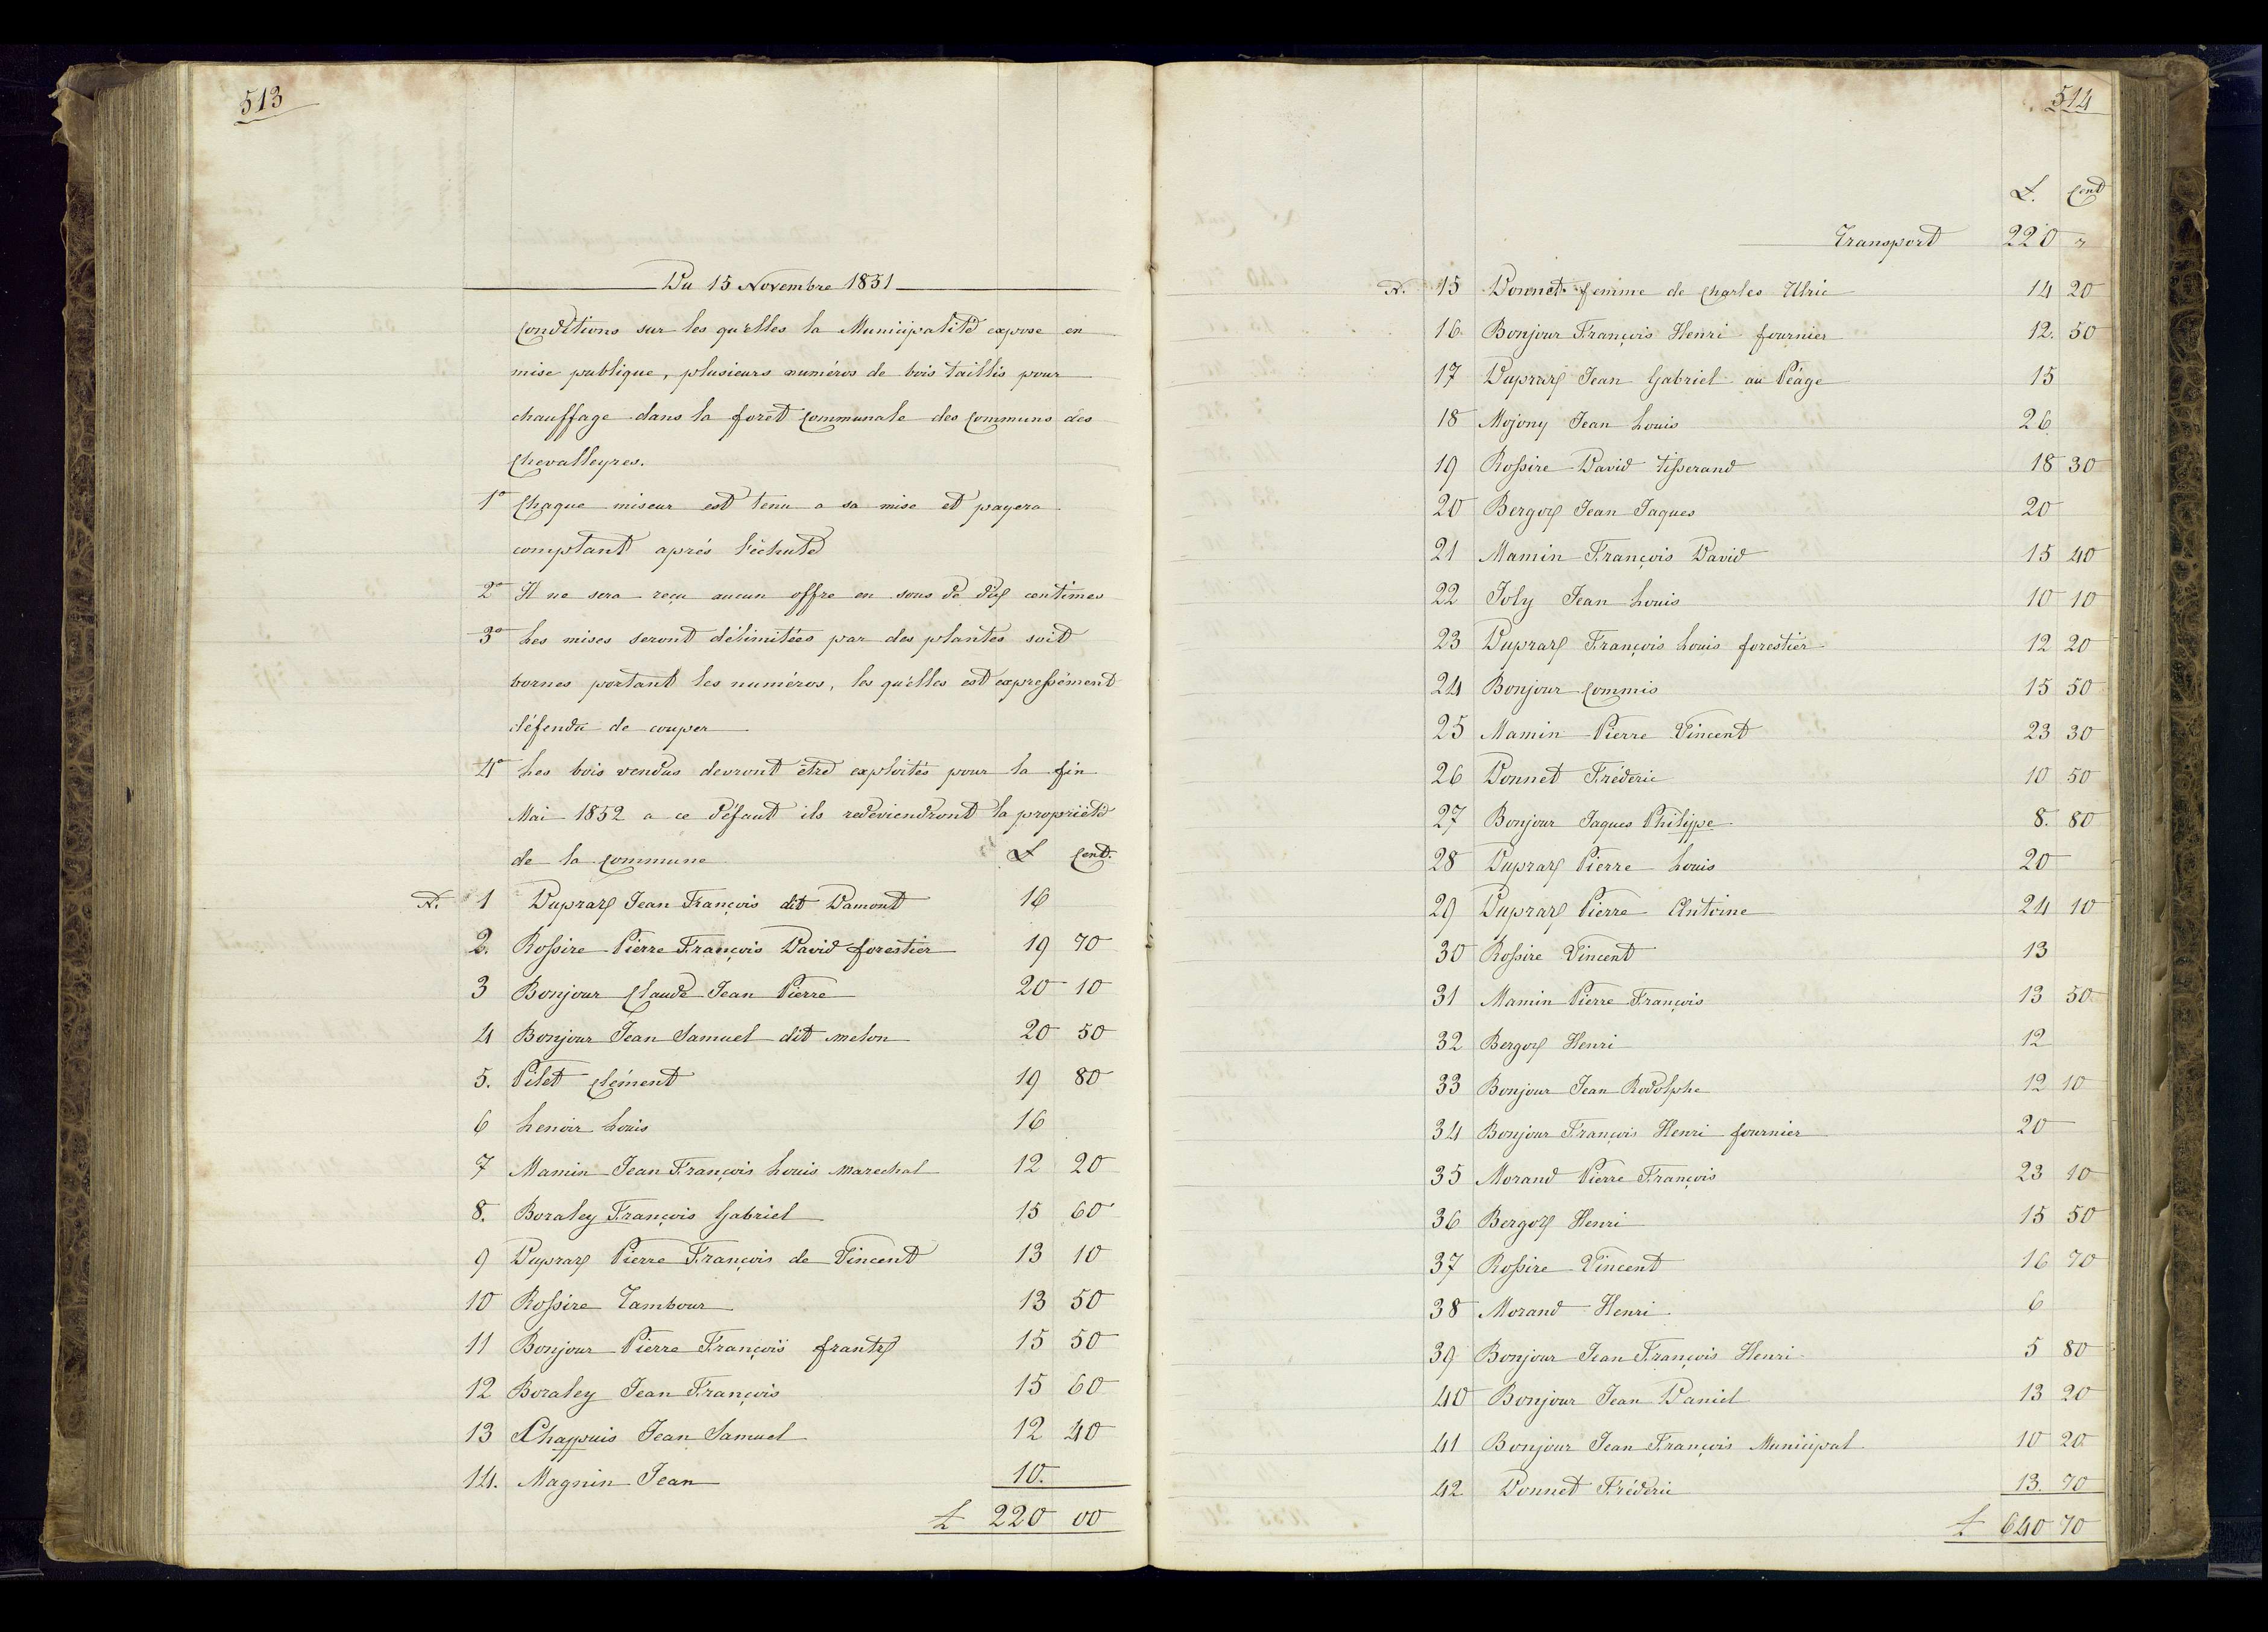 513
Du 15 Novembre 1851
Conditions sur les qu'elles la Municipalité expose en
mise publique, plusieurs numéros de bois taillis pour
chauffage dans la forêt Communale des Communs des
Chevalleyres.
1° Chaque miseur est tenu a sa mise et payera
comptant aprés l'échute
2° Il ne sera reçu aucun offre en sous de dix centimes
3° Les mises seront délimitées par des plantes soit
bornes portant les numéros, les qu'elles est expressément
défendu de couper
4° Les bois vendus devront être exploités pour la fin
Mai 1852 a ce défaut ils redeviendront la propriété
de la Commune £ Cent.
N. 1 Dupraz Jean François dit Damont 16
2. Rossire Pierre François David forestier 19 70
3 Bonjour Claude Jean Pierre 20 10
4 Bonjour Jean Samuel dit melon 20 50
5. Pilet Clément 19 80
6 Lenoir Louis 16
7 Mamin Jean François Louis marechal 12 20
8. Boraley François Gabriel 15 60
9 Dupraz Pierre François de Vincent 13 10
10 Rossire Tambour 13 50
11 Bonjour Pierre François frantz 15 50
12 Boraley Jean François 15 60
13 Chappuis Jean Samuel 12 40
14. Magnin Jean 10.
£ 220 00
514
£. Cent
Transport 220 "
N. 15 Donnet femme de Charles Ulric 14 20
16 Bonjour François Henri fournier 12. 50
17 Dupraz Jean Gabriel au Péage 15
18 Mojony Jean Louis 26
19 Rossire David tisserand 18 30
20 Bergoz Jean Jaques 20
21 Mamin François David 15 40
22 Joly Jean Louis 10 10
23 Dupraz François Louis forestier 12 20
24 Bonjour Commis 15 50
25 Mamin Pierre Vincent 23 30
26 Donnet Fréderic 10 50
27 Bonjour Jaques Philippe 8. 80
28 Dupraz Pierre Louis 20
29 Dupraz Pierre Antoine 24 10
30 Rossire Vincent 13
31 Mamin Pierre François 13 50
32 Bergoz Henri 12
33 Bonjour Jean Rodolphe 12 10
34 Bonjour François Henri fournier 20
35 Morand Pierre François 23 10
36 Bergoz Henri 15 50
37 Rossire Vincent 16 70
38 Morand Henri 6
39 Bonjour Jean François Henri 5 80
40 Bonjour Jean Daniel 13 20
41 Bonjour Jean François Municipal 10 20
42 Donnet Fréderic 13. 70
£ 640 70